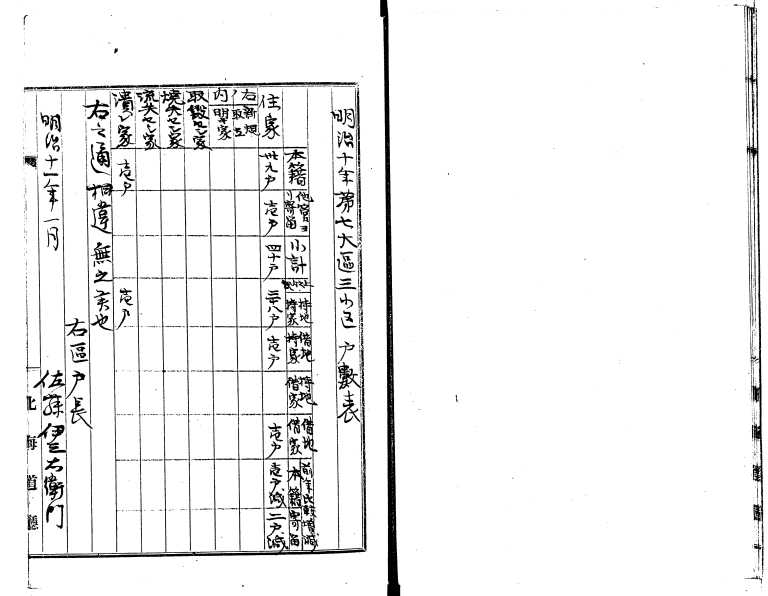 明治十年第七大區三小区戸數表
本籍
他管ヨリ寄留
小計
持地持家
借地持家
持地借家
借地借家
前年比較増減
本籍
寄留
住家
卅九戸
壱戸
四十戸
三十八戸
壱戸
壱戸
壱戸減
二戸減
右新規取立
内 明家
取毀セシ家
焼失セシ家
流失セシ家
潰シ家
壱戸
壱戸
右之通相違無之候也
明治十一年一月
右區戸長
佐藤伊三右衛門
北海道廳